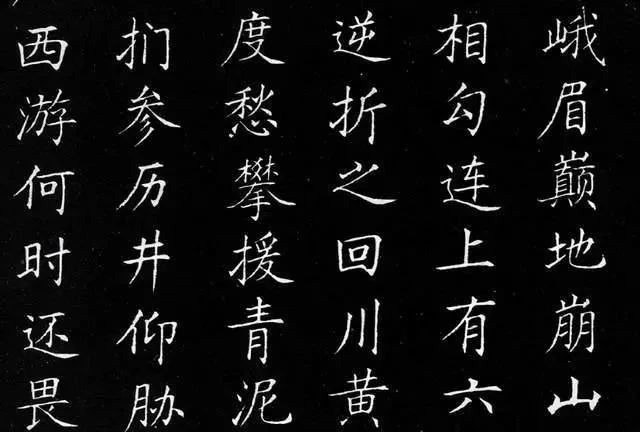 峨眉巅地崩山
相勾连上有六
逆折之回川黄
度愁攀援青泥
扪参历井仰胁
西游何时还畏